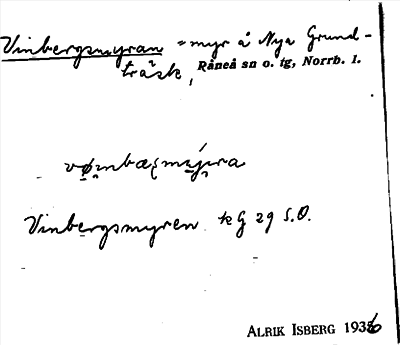 Vinbergsmyran = myr å Nya Grund-
träsk, Råneå sn o. tg, Norrb. l.
Vinbergsmyren kG 29 S.O.
ALRIK ISBERG 1936